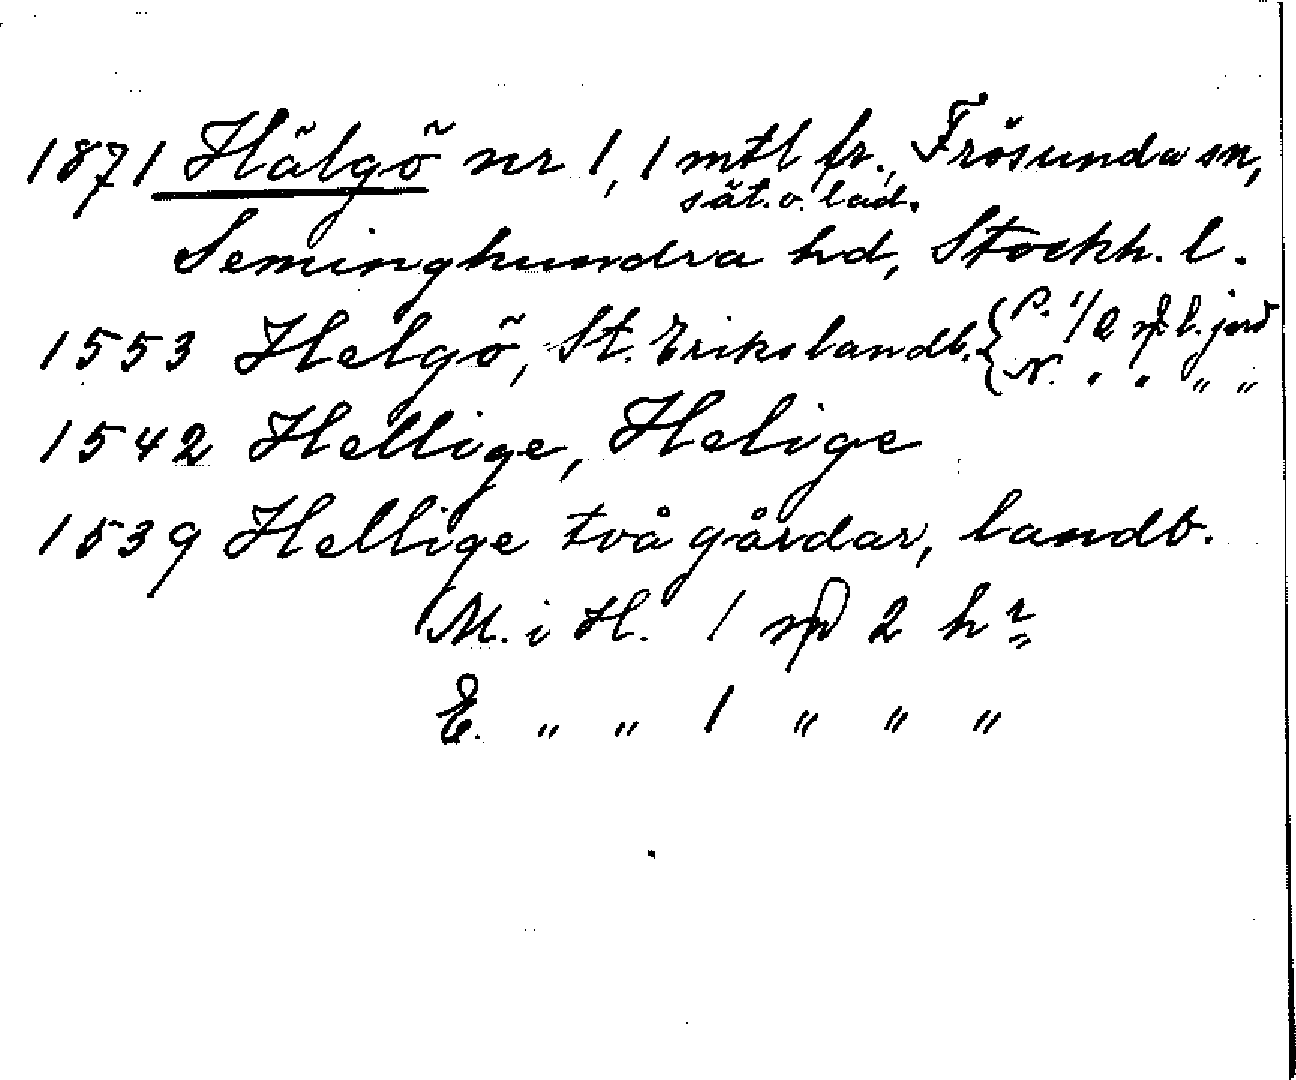 1871 Hälgö nr 1, 1 mtl fr., Frösunda sn,
sät. o. lad.
Seminghundra hd, Stockh. l.
1553 Helgö, St. Eriks landb. { P. 1/ l. jord
N. " " " "
1542 Hellige, Helige
1539 Hellige två gårdar, landb.
M. i H. 1 mp 2 hr
E. " " 1 " " "